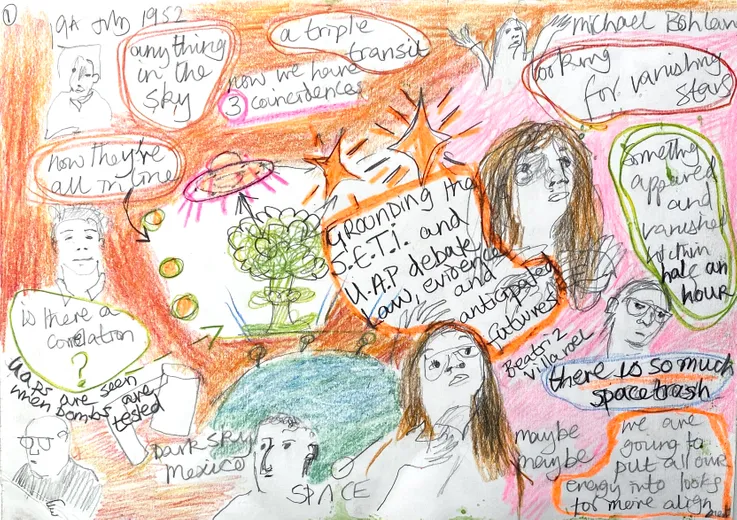 1
9th July 1952
anything
in the
sky
a triple
transit
now we have
3 coincidences
Michael Bohlan
looking
for vanishing
stars
now they're
all in line
Grounding the
S.E.T.I. and
U.A.P debate
Law, evidence
and
anticipated
futures
Something
appeared
and
vanished
within
half an
hour
is there a
correlation
?
U.A.Ps are seen
when bombs are
tested
Beatriz
Villaroel
there is so much
space trash
Dark Sky
Mexico
SPACE
maybe
maybe
we are
going to
put all our
energy into looks
for more align